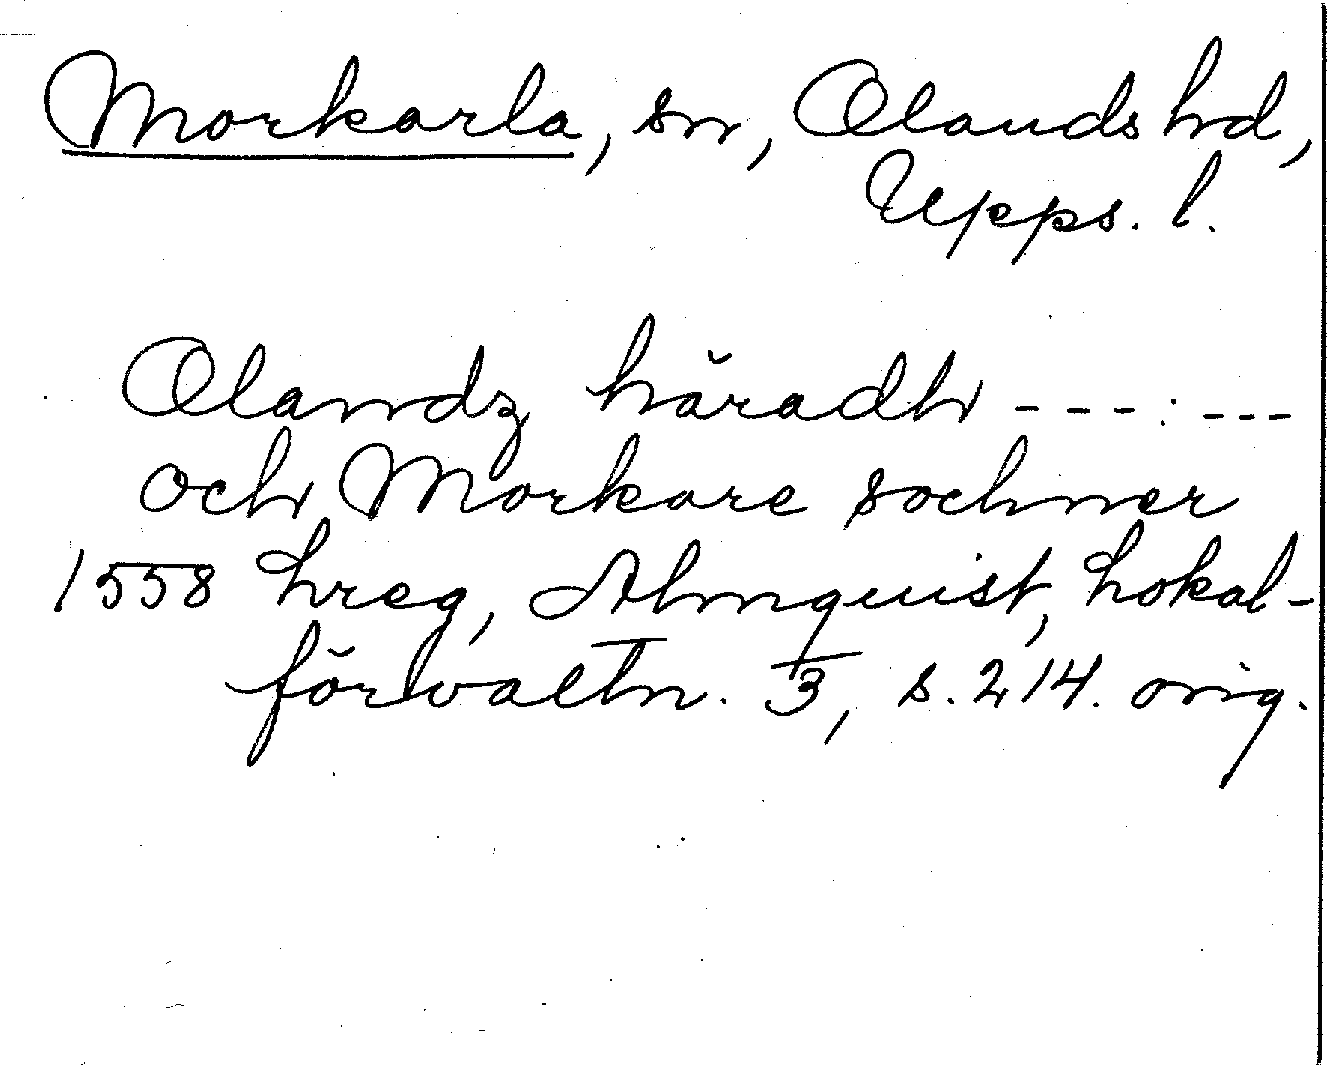 Morkarla, sn, Olands hd,
Upps. l.
Olandz häradh ---:---
och Morkare sochner
1558 hreg, Almquist, Lokal-
förvaltn. 3, s. 214. orig.